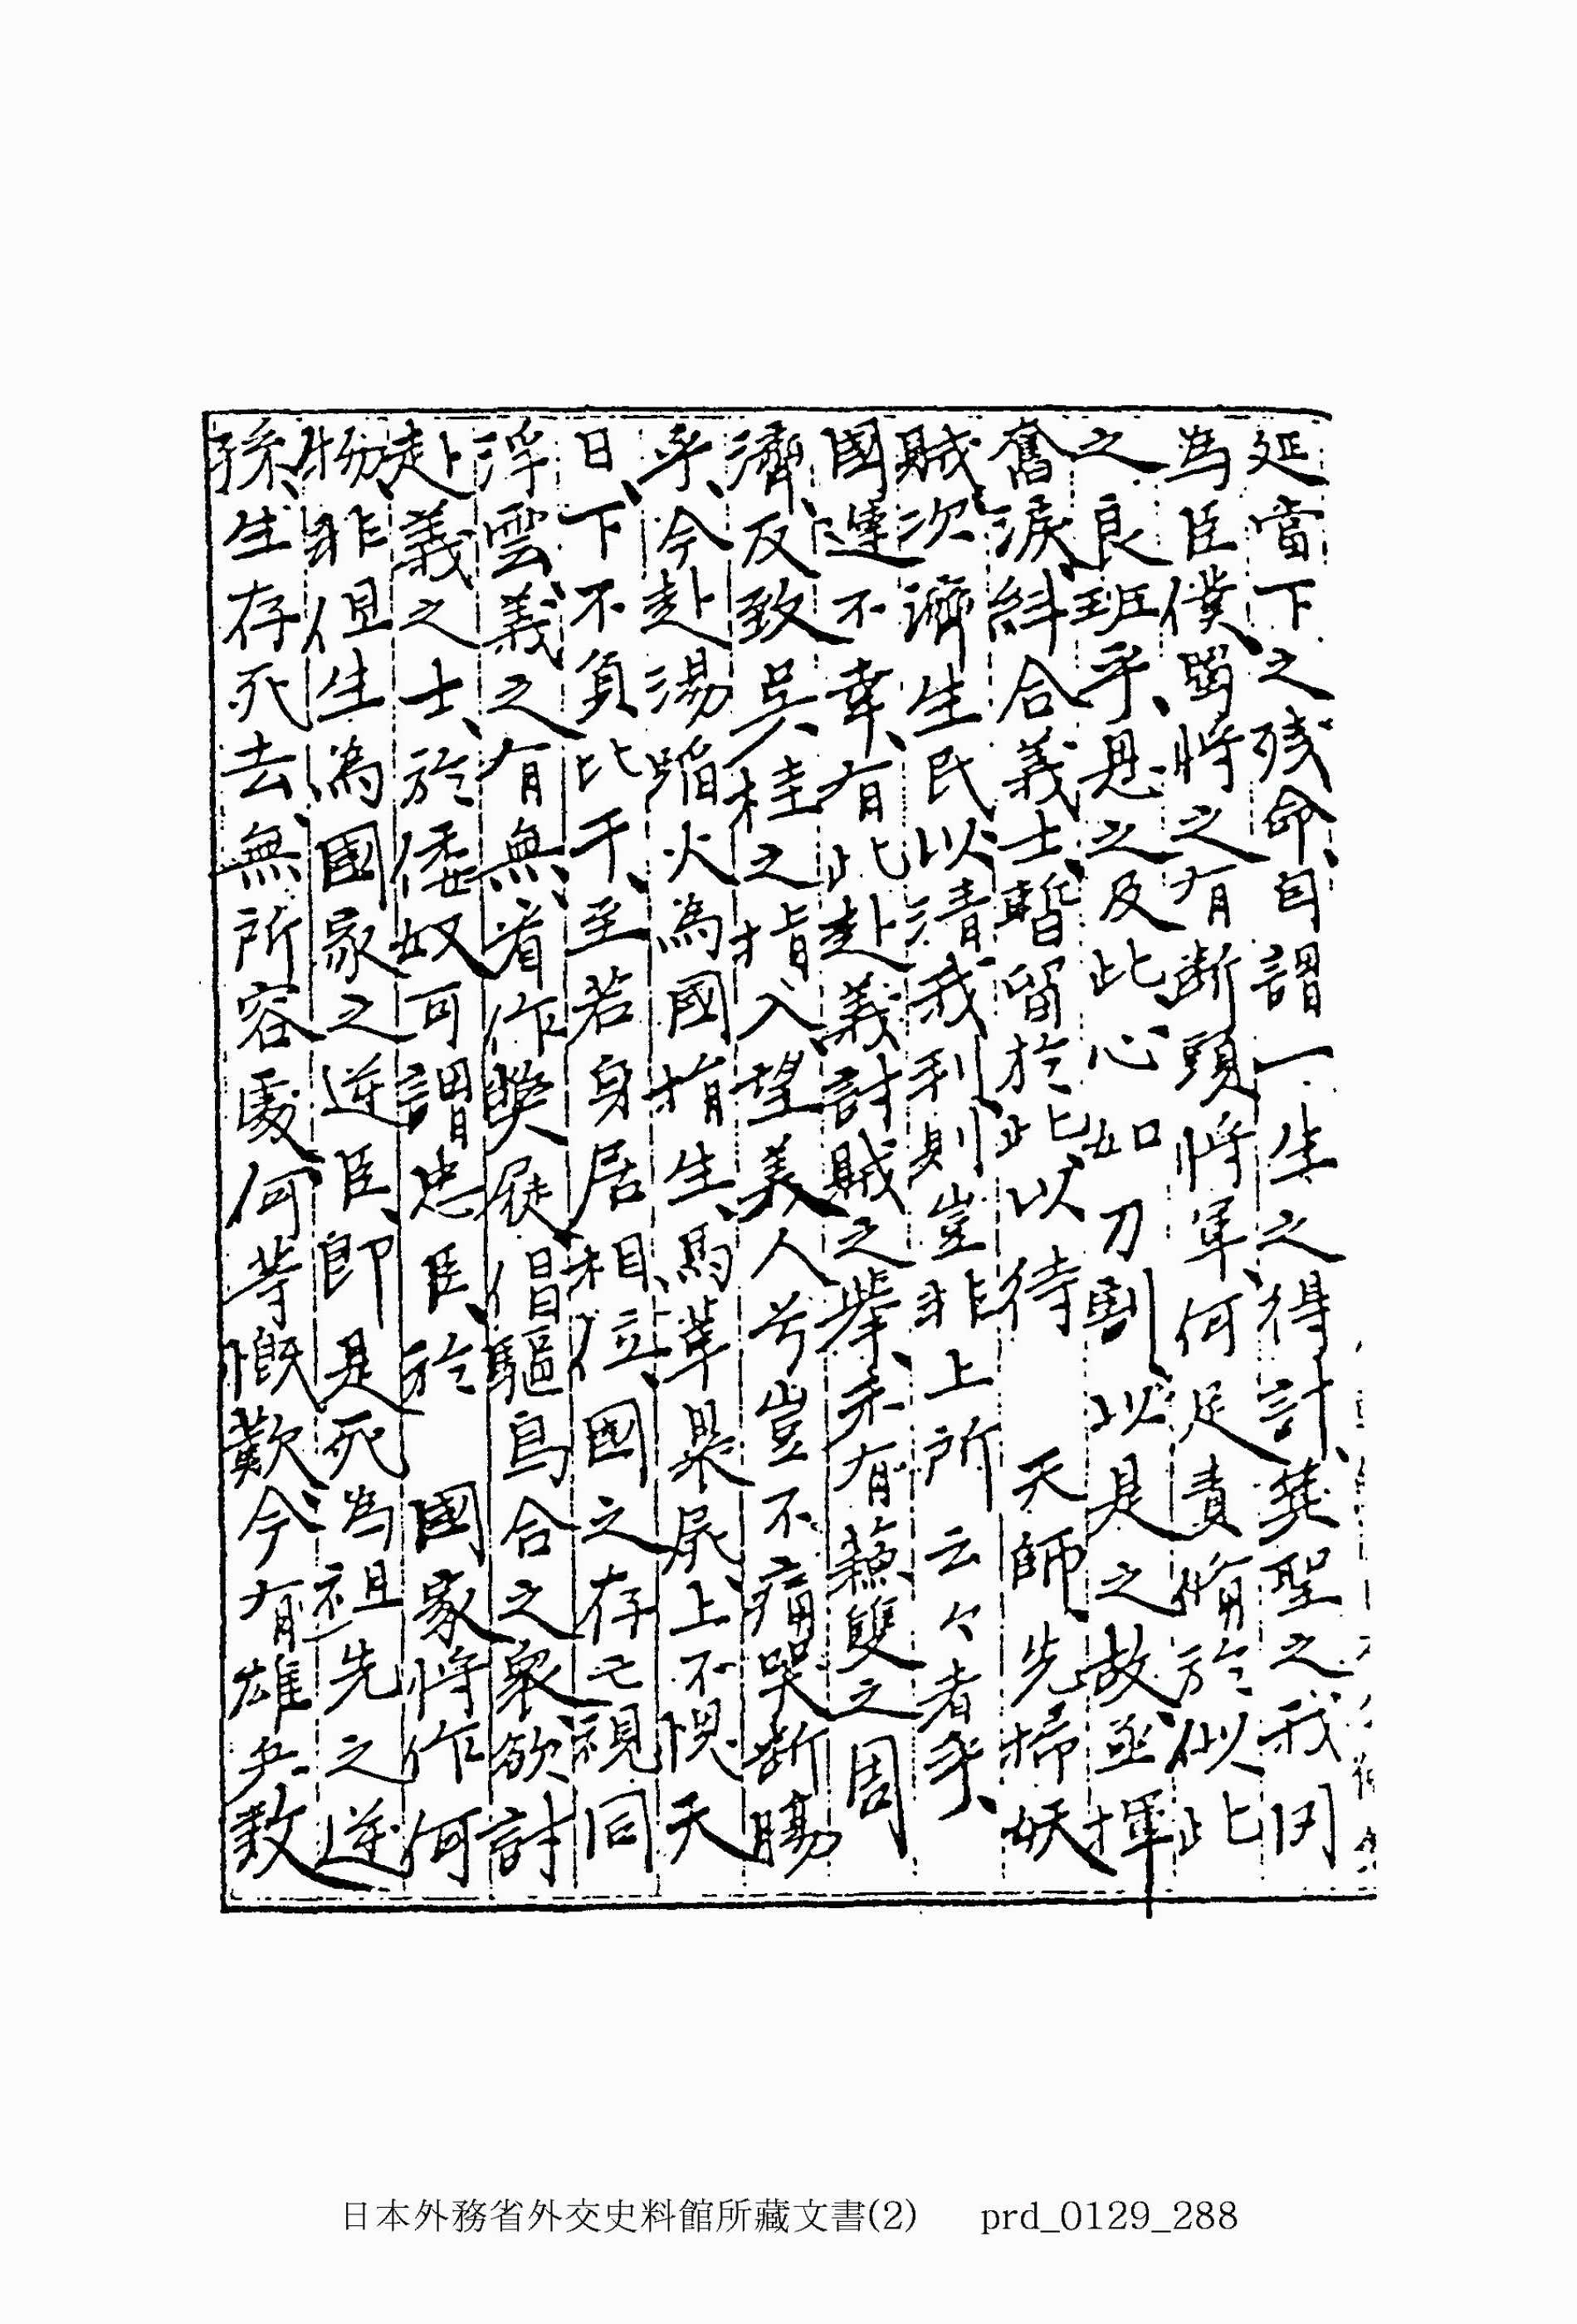 延當下之残命、自謂一生之得計、龚聖之我罔
為臣僕、蜀將之有断頭將軍、何足責脩於似此
之良班乎、思之及此、心如刀割、以是之故、亟揮
奮淚、糾合義士、暫留於此、以待 天師、先掃妖
賊、次濟生民、以清我利則豈非上所云々者乎、
國運不幸、有此赴義討賊之擧、未有蘓雙之周
濟、反致吳桂之指入、望美人兮豈不痛哭断膓
乎、今赴湯蹈火為國捐生、馬革暴屍、上不愧天
日、下不負比干、至若身居相位、國之存亡視同
浮雲義之有無、看作獘屣、倡驅烏合之衆、欲討
赴義之士、於倭奴可謂忠臣、於 國家將作何
物、非但生為國家之逆臣、即是死為祖先之逆
孫、生存死去、無所容處、何等慨歎、今有雄兵数
日本外務省外交史料館所藏文書(2) prd_0129_288